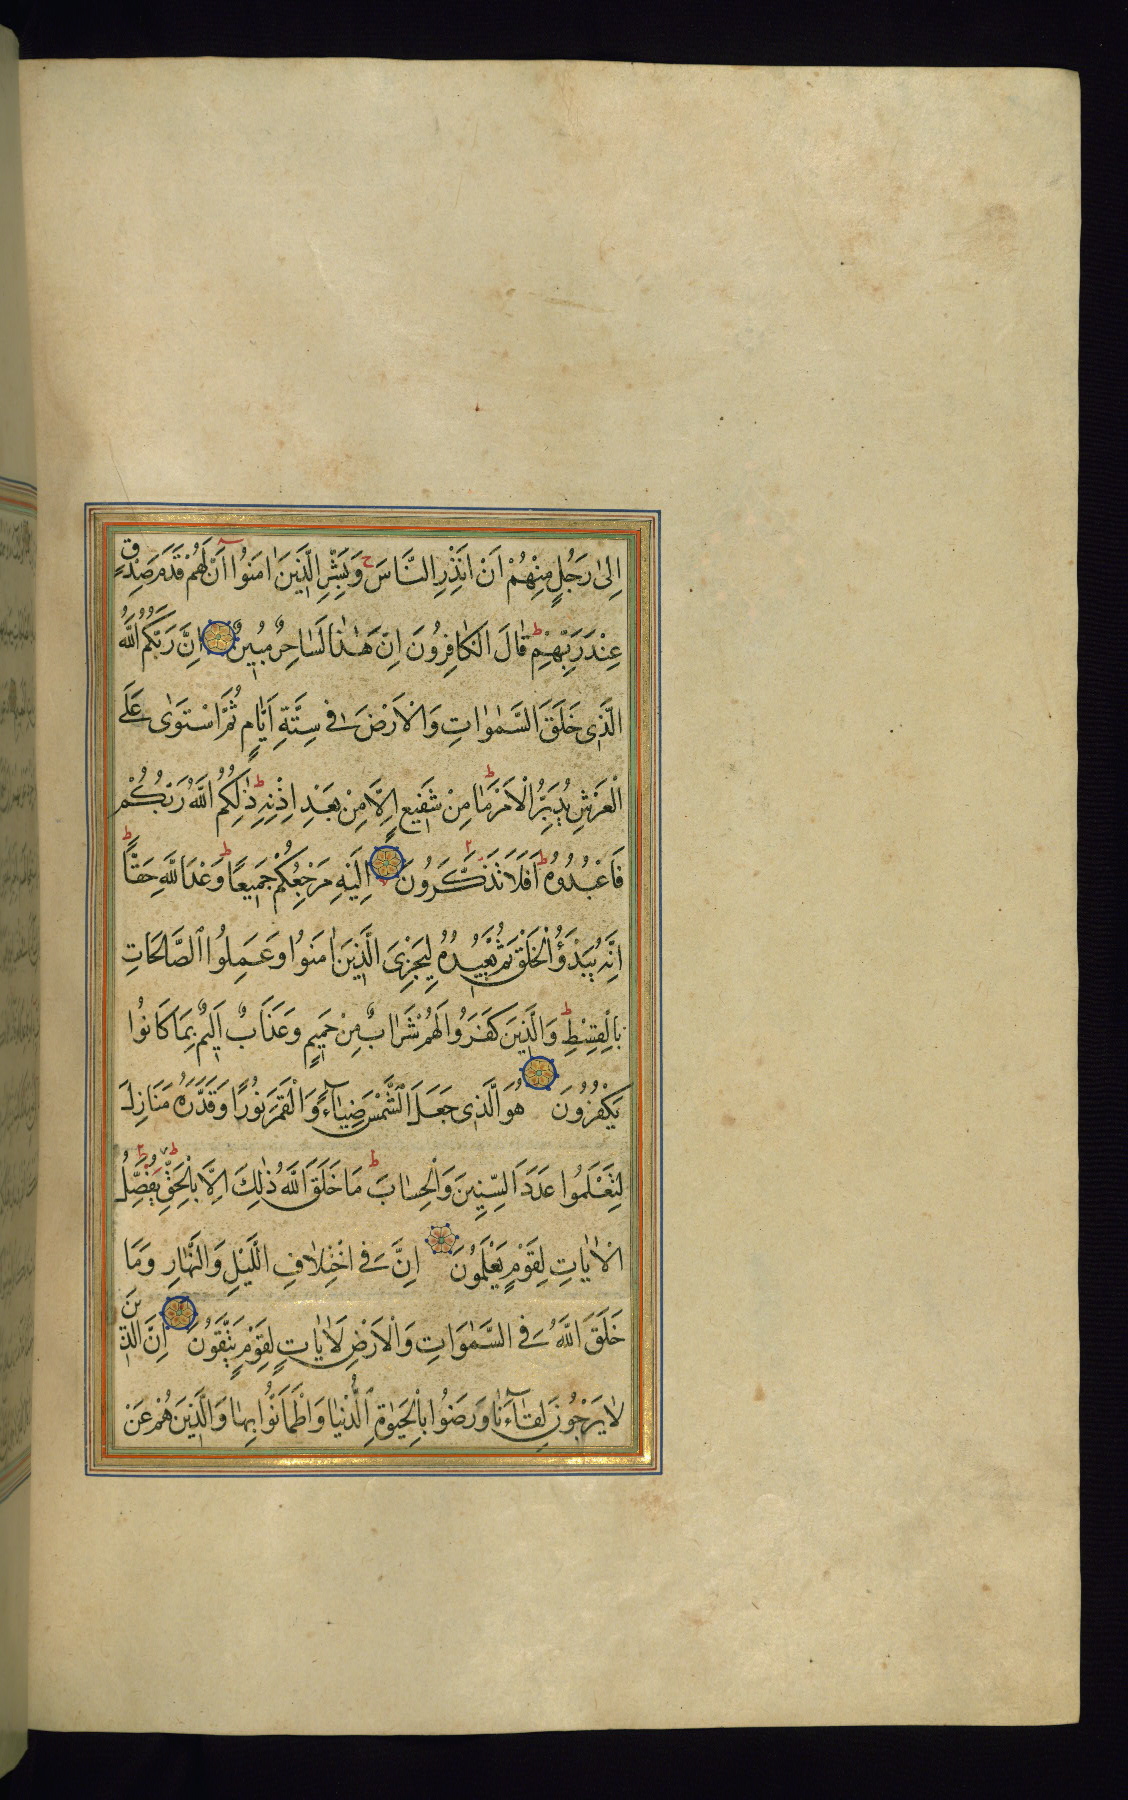 اِلىٰ رَجُلٍ مِنْهُمْ اَنْ اَنْذِرِ النَّاسَ وَبَشِّرِ الَّذِينَ اٰمَنُوا اَنَّ لَهُمْ قَدَمَ صِدْقٍ
عِنْدَ رَبِّهِمْ قَالَ الْكَافِرُونَ اِنَّ هٰذَا لَسَاحِرٌ مُبِينٌ اِنَّ رَبَّكُمُ اللّٰهُ
الَّذِي خَلَقَ السَّمٰوَاتِ وَالْاَرْضَ فِي سِتَّةِ اَيَّامٍ ثُمَّ اسْتَوٰى عَلَى
الْعَرْشِ يُدَبِّرُ الْاَمْرَ مَا مِنْ شَفِيعٍ اِلَّا مِنْ بَعْدِ اِذْنِهِ ذٰلِكُمُ اللّٰهُ رَبُّكُمْ
فَاعْبُدُوهُ اَفَلَا تَذَكَّرُونَ اِلَيْهِ مَرْجِعُكُمْ جَمِيعًا وَعْدَ اللّٰهِ حَقًّا
اِنَّهُ يَبْدَؤُا الْخَلْقَ ثُمَّ يُعِيدُهُ لِيَجْزِيَ الَّذِينَ اٰمَنُوا وَعَمِلُوا الصَّالِحَاتِ
بِالْقِسْطِ وَالَّذِينَ كَفَرُوا لَهُمْ شَرَابٌ مِنْ حَمِيمٍ وَعَذَابٌ اَلِيمٌ بِمَا كَانُوا
يَكْفُرُونَ هُوَ الَّذِي جَعَلَ الشَّمْسَ ضِيَاءً وَالْقَمَرَ نُورًا وَقَدَّرَهُ مَنَازِلَ
لِتَعْلَمُوا عَدَدَ السِّنِينَ وَالْحِسَابَ مَا خَلَقَ اللّٰهُ ذٰلِكَ اِلَّا بِالْحَقِّ يُفَصِّلُ
الْاٰيَاتِ لِقَوْمٍ يَعْلَمُونَ اِنَّ فِي اخْتِلَافِ اللَّيْلِ وَالنَّهَارِ وَمَا
خَلَقَ اللّٰهُ فِي السَّمٰوَاتِ وَالْاَرْضِ لَاٰيَاتٍ لِقَوْمٍ يَتَّقُونَ اِنَّ الَّذِينَ
لَا يَرْجُونَ لِقَاءَنَا وَرَضُوا بِالْحَيٰوةِ الدُّنْيَا وَاطْمَاَنُّوا بِهَا وَالَّذِينَ هُمْ عَنْ